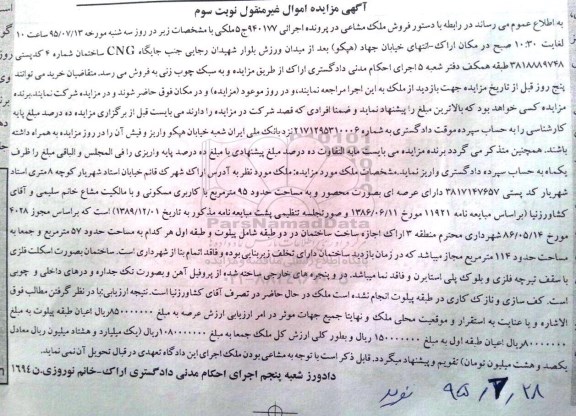 آگهی مزایده اموال غیرمنقول نوبت سوم
به اطلاع عموم می رساند در رابطه با دستور فروش ملک مشاعی در پرونده اجرائی ۹۴۰۱۷۷ج۵ملکی با مشخصات زیر در روز سه شنبه مورخه ۹۵/۰۷/۱۳ ساعت ۱۰
لغایت ۱۰:۳۰ صبح در مکان اراک-انتهای خیابان جهاد (هپکو) بعد از میدان ورزش بلوار شهیدان رجایی جنب جایگاه CNG ساختمان شماره ۴ کدپستی
۳۸۱۸۸۸۹۷۴۸ طبقه همکف دفتر شعبه ۵ اجرای احکام مدنی دادگستری اراک از طریق مزایده و به سبک چوب زنی به فروش می رسد. متقاضیان خرید می توانند
پنج روز قبل از تاریخ مزایده جهت بازدید از ملک به این اجرا مراجعه نمایند، و در روز موعود (مزایده) و در مکان فوق حاضر شوند و در مزایده شرکت نمایند.برنده
مزایده کسی خواهد بود که بالاترین مبلغ را پیشنهاد نماید و ضمنا افرادی که قصد شرکت در مزایده را دارند می بایست قبل از برگزاری مزایده ده درصد مبلغ پایه
کارشناسی را به حساب سپرده موقت دادگستری به شماره ۲۱۷۱۲۹۵۳۱۰۰۰۶ نزد بانک ملی ایران شعبه خیابان هپکو واریز و فیش آن را در روز مزایده به همراه داشته
باشند. همچنین متذکر می گردد برنده مزایده می بایست مابه التفاوت ده درصد مبلغ پیشنهادی با مبلغ ده درصد پایه واریزی را فی المجلس و الباقی مبلغ را ظرف
یکماه به حساب سپرده دادگستری واریز نماید.مشخصات ملک مورد مزایده: ملک مورد نظر به آدرس اراک شهرک قائم خیابان استاد شهریار کوچه ۸ متری استاد
شهریار کد پستی ۳۸۱۷۱۴۷۶۵۷ دارای عرصه ای بصورت محصور و به مساحت حدود ۹۵ مترمربع با کاربری مسکونی و با مالکیت مشاع خانم سلیمی و آقای
کشاورزنیا (براساس مبایعه نامه ۱۱۹۲۱ مورخ ۱۳۸۶/۰۶/۱۱ و صورتجلسه تنظیمی پشت مبایعه نامه مذکور به تاریخ ۱۳۸۹/۱۲/۰۱) است که براساس مجوز ۴۰۲۸
مورخ ۸۶/۰۵/۱۴ شهرداری محترم منطقه ۳ اراک اجازه ساخت ساختمان در دو طبقه شامل پیلوت و طبقه اول هر کدام به مساحت حدود ۵۷ مترمربع و جمعا به
مساحت حدود ۱۱۴ مترمربع مجاز میباشد که در زمان بازدید ساختمان دارای تخلف زیربنایی بوده و فاقد اتمام بنا از شهرداری است. ساختمان بصورت اسکلت فلزی
با سقف تیرچه فلزی و بلوک پلی استایرن و فاقد نما میباشد. در و پنجره های خارجی ساخته شده از پروفیل آهن و بصورت تک جداره و درهای داخلی و چوبی
است. کف سازی و نازک کاری در طبقه پیلوت انجام نشده است ملک در حال حاضر در تصرف آقای کشاورزنیا است. نتیجه ارزیابی:با در نظر گرفتن مطالب فوق
الاشاره و با عنایت به استقرار و موقعیت محلی ملک و نهایتا جمیع جهات موثر در امر ارزیابی ارزش عرصه به مبلغ
ریال اعیان طبقه پیلوت به مبلغ
ریال اعیان طبقه اول به مبلغ
ریال و بطور کلی ارزش کل ملک جمعا به مبلغ
ریال (یک میلیارد و هشتاد میلیون ریال معادل
یکصد و هشت میلیون تومان) تقویم و پیشنهاد میگردد. قابل ذکر است با توجه به مشاعی بودن ملک اجرای این دادگاه تعهدی در قبال تحویل آن نمی نماید.
دادورز شعبه پنجم اجرای احکام مدنی دادگستری اراک-خانم نوروزی.ن ۱۶۹۴
۹۵/۷/۲۸